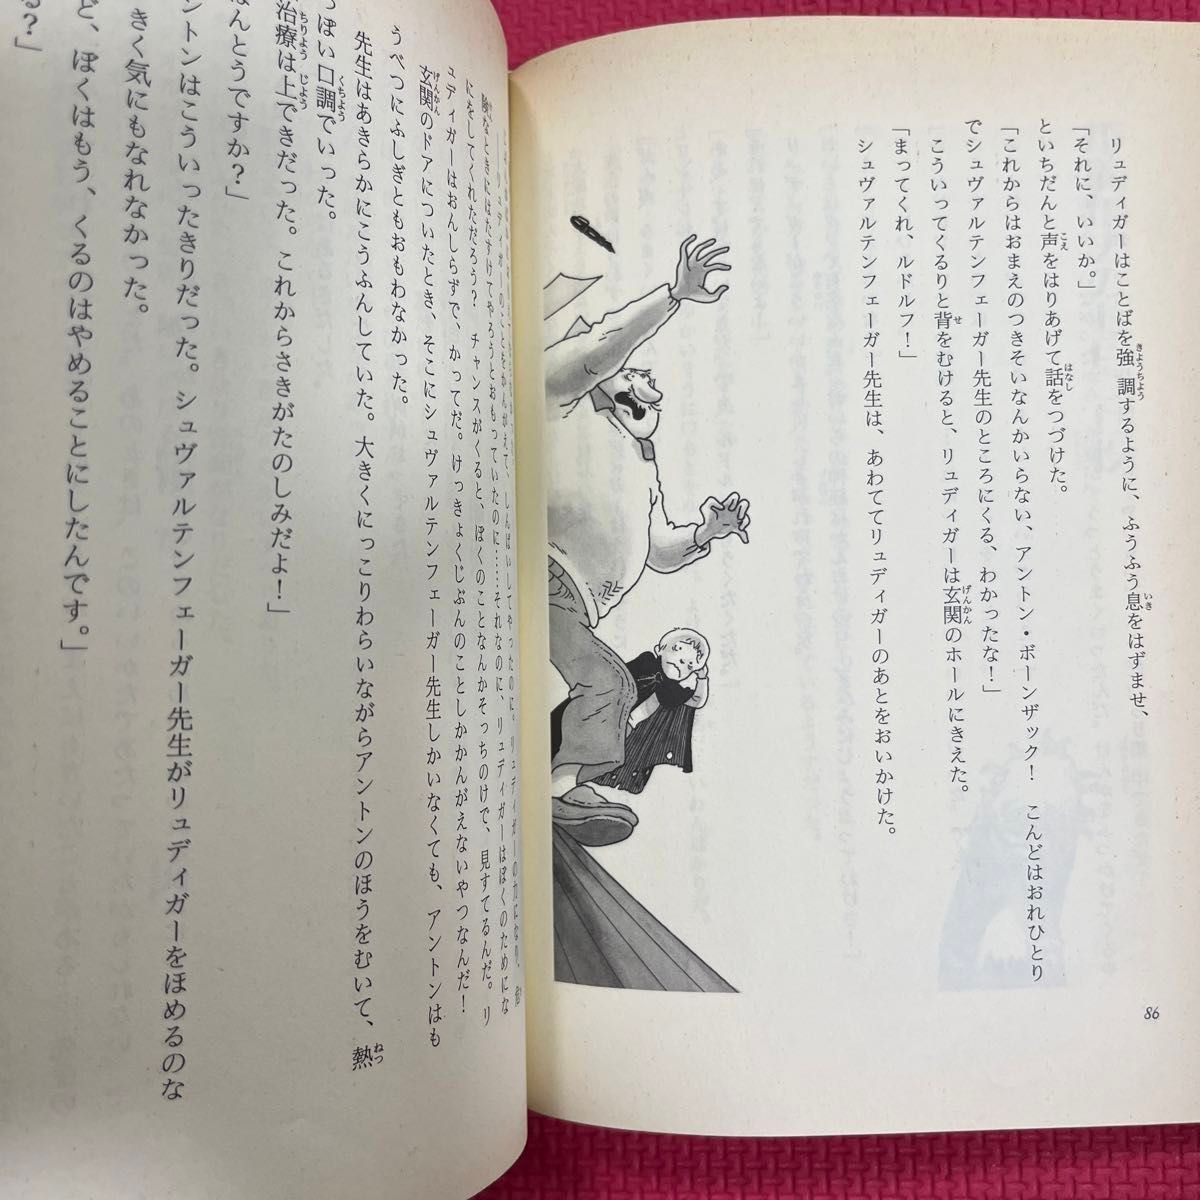 リュディガーはことばを強調するように、ふうふう息をはずませ、
「それに、いいか。」
といちだんと声をはりあげて話をつづけた。
「これからはおまえのつきそいなんかいらない、アントン・ボーンザック! こんどはおれひとり
でシュヴァルテンフェーガー先生のところにくる、わかったな!」
こういってくるりと背をむけると、リュディガーは玄関のホールにきえた。
「まってくれ、ルドルフ!」
シュヴァルテンフェーガー先生は、あわててリュディガーのあとをおいかけた。
86
しんぱいしてやったのに。リュディガーの力になり、危
険なときにはたすけてやろうとおもっていたのに……それなのに、リュディガーはぼくのためにな
にをしてくれただろう? チャンスがくると、ぼくのことなんかそっちのけで、見すてるんだ。リ
ュディガーはおんしらずで、かってだ。けっきょくじぶんのことしかかんがえないやつなんだ!
玄関のドアについたとき、そこにシュヴァルテンフェーガー先生しかいなくても、アントンはも
うべつにふしぎともおもわなかった。
先生はあきらかにこうふんしていた。大きくにっこりわらいながらアントンのほうをむいて、熱
っぽい口調でいった。
治療は上できだった。これからさきがたのしみだよ!」
んとうですか?」
ントンはこういったきりだった。シュヴァルテンフェーガー先生がリュディガーをほめるのな
きく気にもなれなかった。
ど、ぼくはもう、くるのはやめることにしたんです。」
る?」